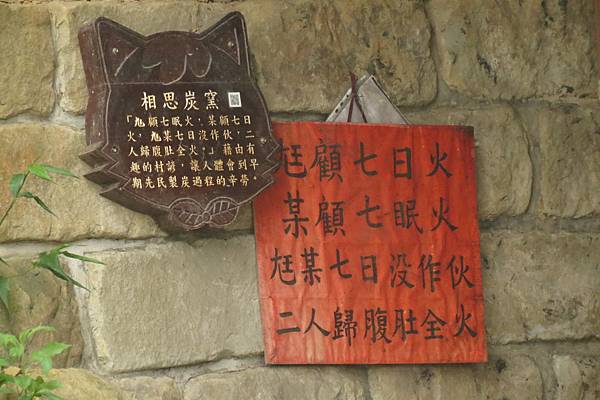 相思炭窯
「尪顧七眠火，某顧七日
火，尪某七日沒作伙，二
人歸腹肚全火。」藉由有
趣的村諺，讓人體會到早
期先民製炭過程的辛勞。
尪顧七日火
某顧七眠火
尪某七日没作伙
二人歸腹肚全火